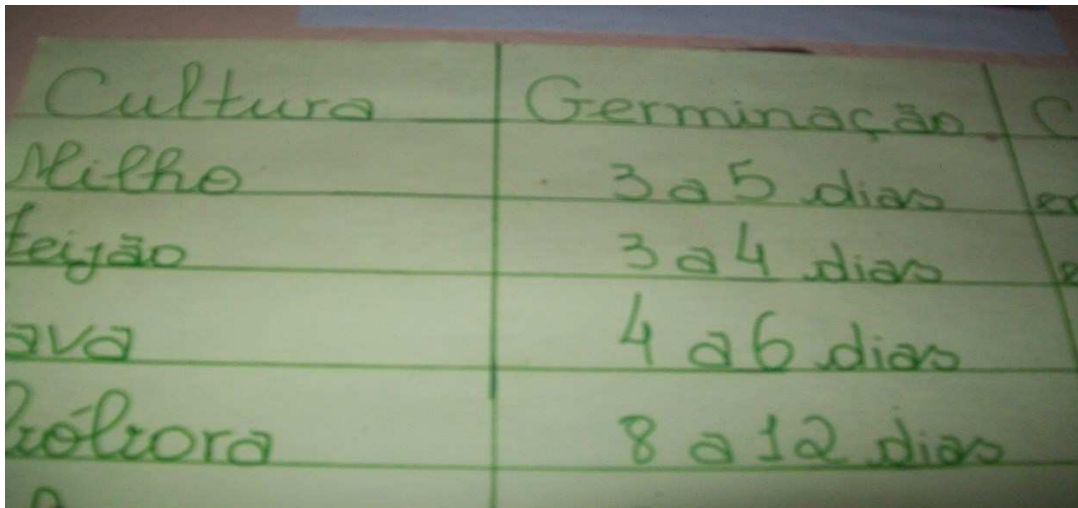 Cultura Germinação C
Milho 3 a 5 dias
feijão 3 a 4 dias
ava 4 a 6 dias
8 a 12 dias